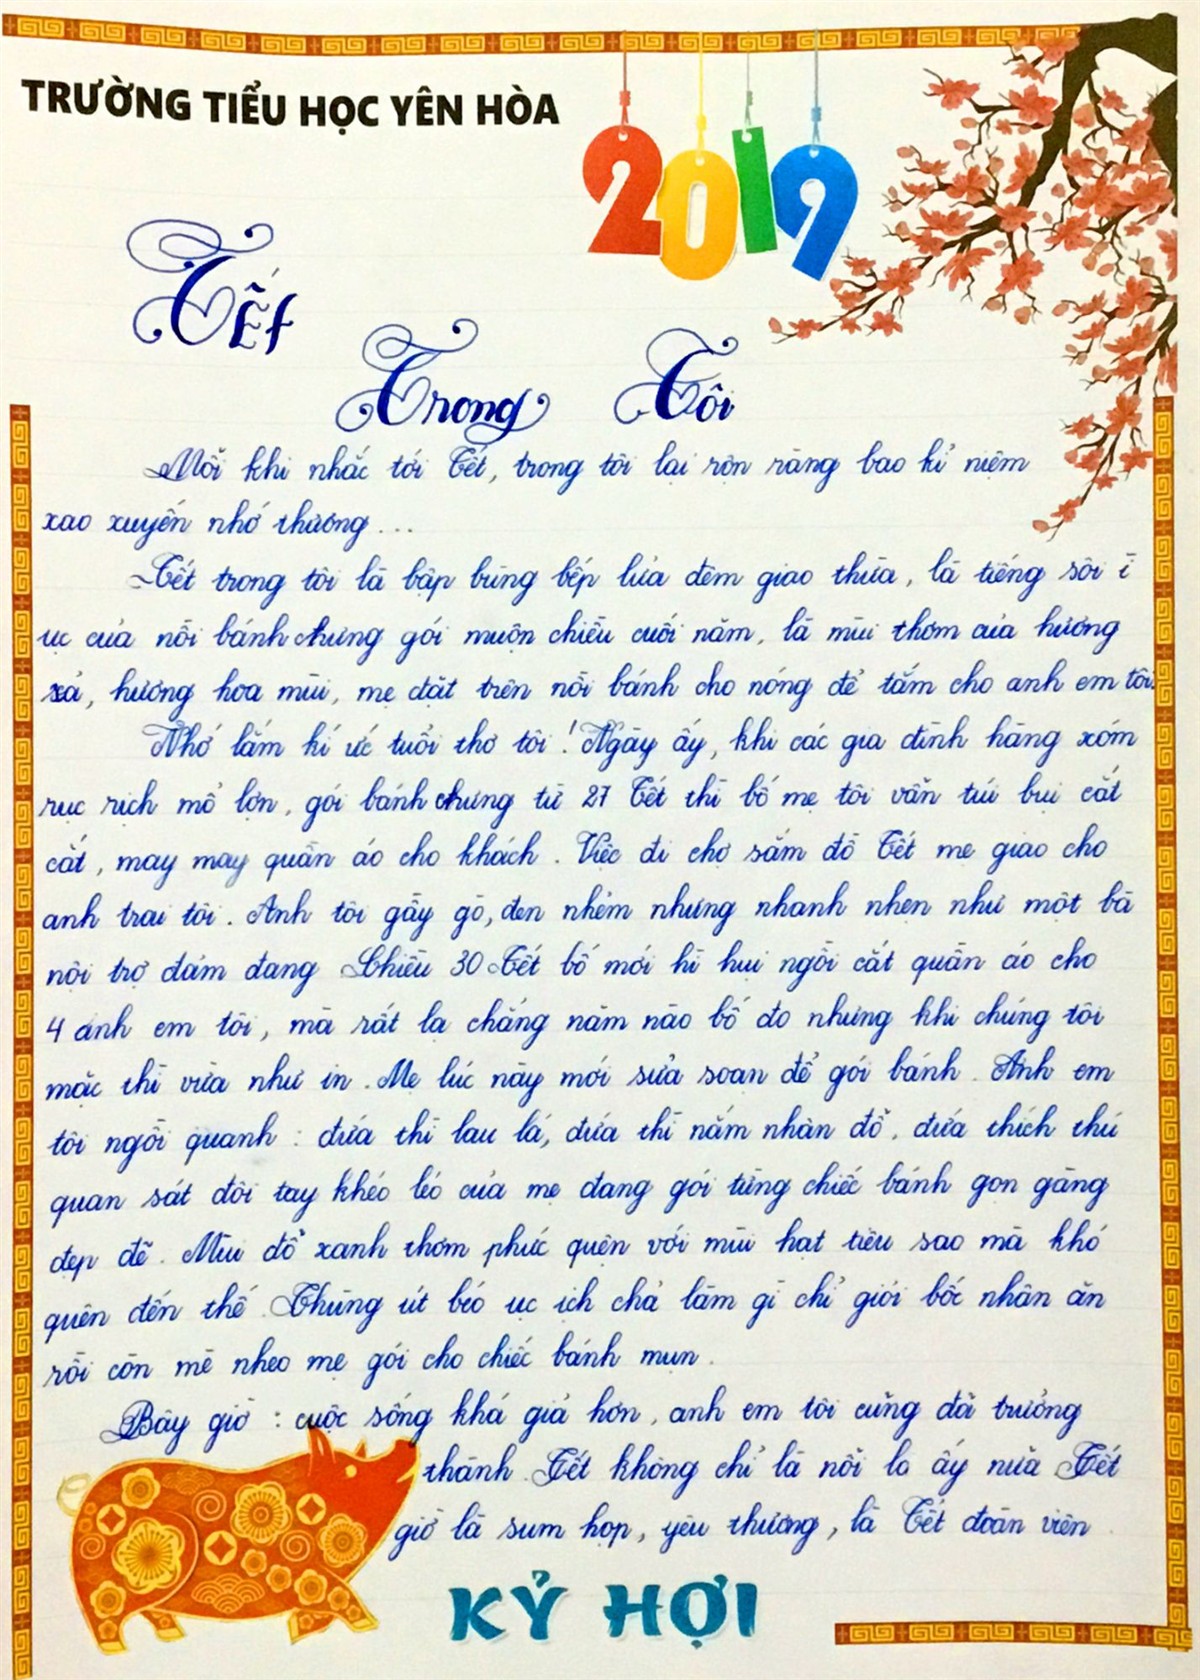 TRƯỜNG TIỂU HỌC YÊN HÒA
2019
Tết
Trong Tôi
Mỗi khi nhắc tới Tết, trong tôi lại rộn ràng bao kỉ niệm
xao xuyến nhớ thương...
Tết trong tôi là bập bùng bếp lửa đêm giao thừa, là tiếng sôi ì
ục của nồi bánh chưng gói muộn chiều cuối năm, là mùi thơm của hương
xả, hương hoa mùi, mẹ đặt trên nồi bánh cho nóng để tắm cho anh em tôi.
Nhớ lắm kí ức tuổi thơ tôi! Ngày ấy, khi các gia đình hàng xóm
rục rịch mổ lợn, gói bánh chưng từ 27 Tết thì bố mẹ tôi vẫn túi bụi cắt
cắt, may may quần áo cho khách. Việc đi chợ sắm đồ Tết mẹ giao cho
anh trai tôi. Anh tôi gầy gò, đen nhẻm nhưng nhanh nhẹn như một bà
nội trợ đảm đang Chiều 30 Tết bố mới hì hụi ngồi cắt quần áo cho
4 anh em tôi, mà rất lạ chẳng năm nào bố đo nhưng khi chúng tôi
mặc thì vừa như in. Mẹ lúc này mới sửa soạn để gói bánh. Anh em
tôi ngồi quanh: đứa thì lau lá, đứa thì nắm nhân đỗ, đứa thích thú
quan sát đôi tay khéo léo của mẹ đang gói từng chiếc bánh gọn gàng
đẹp đẽ. Mùi đỗ xanh thơm phức quện với mùi hạt tiêu sao mà khó
quên đến thế. Thằng út béo ục ịch chả làm gì chỉ giỏi bốc nhân ăn
rồi còn mè nheo mẹ gói cho chiếc bánh mụn.
Bây giờ: cuộc sống khá giả hơn, anh em tôi cũng đã trưởng
thành. Tết không chỉ là nỗi lo ấy nữa Tết
giờ là sum họp, yêu thương, là Tết đoàn viên.
KỶ HỢI